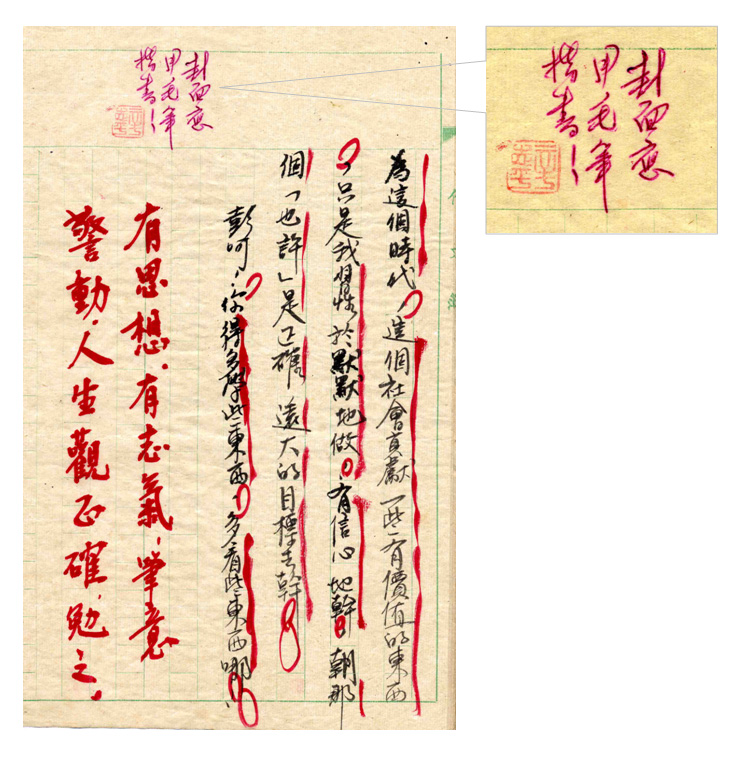 封面應
用毛筆
楷書!
為這個時代,這個社會貢獻一些有價值的東西
,只是我習慣於默默地做。有信心地幹!朝那
個「也許」是正確、遠大的目標去幹。
彭呵,你得多學些東西,多看些東西哪!
有思想,有志氣,筆意
警動,人生觀正確,勉之。
封面應
用毛筆
楷書!